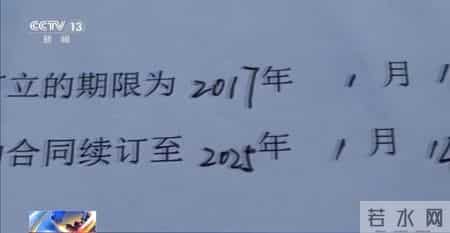 CCTV 13
新闻
立的期限为 2017年 1月 1
合同续订至 2025年 1月 1
若水网